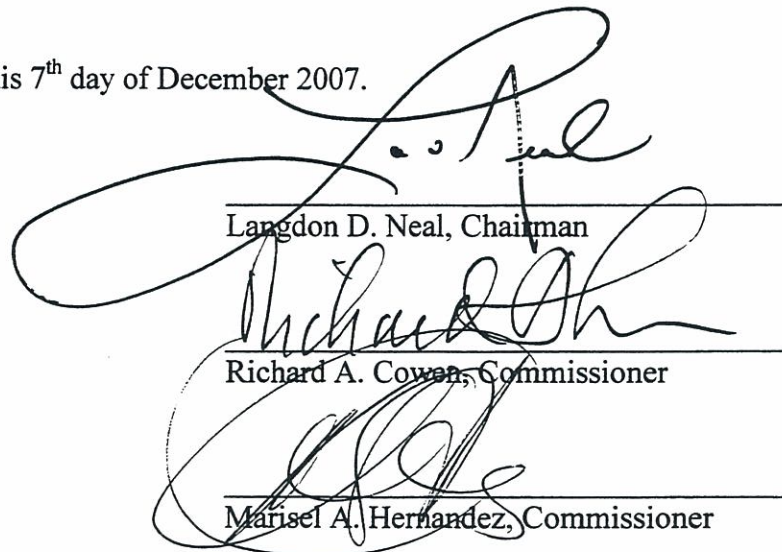 is 7th day of December 2007.
Neal
Langdon D. Neal, Chairman
Richard
Richard A. Cowen, Commissioner
Marisel A. Hernandez, Commissioner